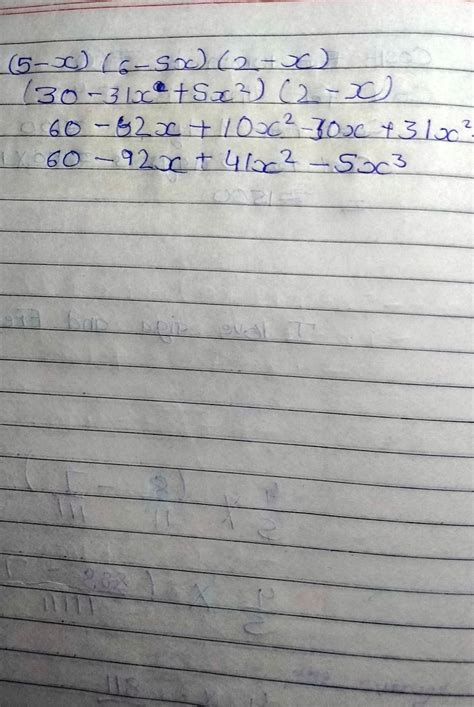 (5-x) (6-5x) (2-x)
(30-31x+5x²) (2-x)
60-62x+10x²-30x+31x²-
60-92x+41x²-5x³